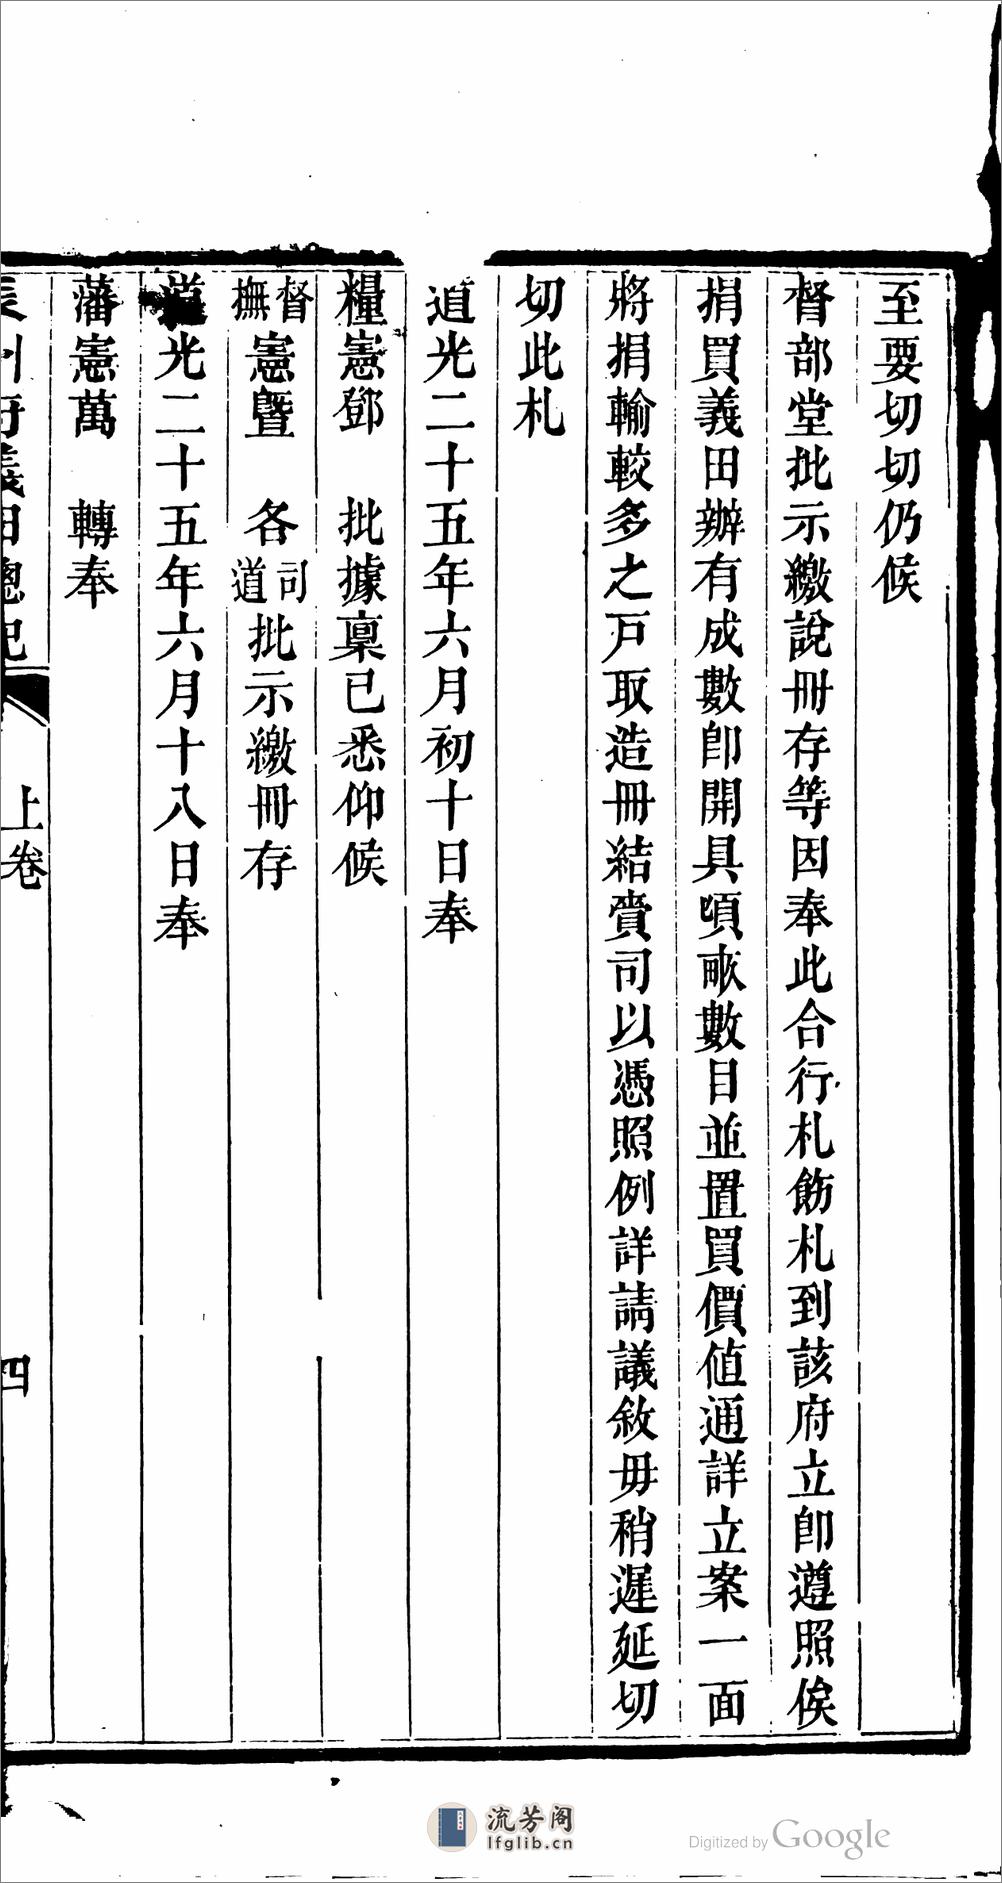 至要切切仍候
督部堂批示繳說冊存等因奉此合行札飭札到該府立即遵照俟
捐買義田辦有成數即開具頃畞數目並置買價值通詳立案一面
將捐輸較多之戶取造冊結賫司以憑照例詳請議敘毋稍遲延切
切此札
道光二十五年六月初十日奉
糧憲鄧 批據稟已悉仰候
督撫憲曁 各司道批示繳冊存
道光二十五年六月十八日奉
藩憲萬 轉奉
上卷
四
流芳阁
lfglib.cn
Digitized by Google